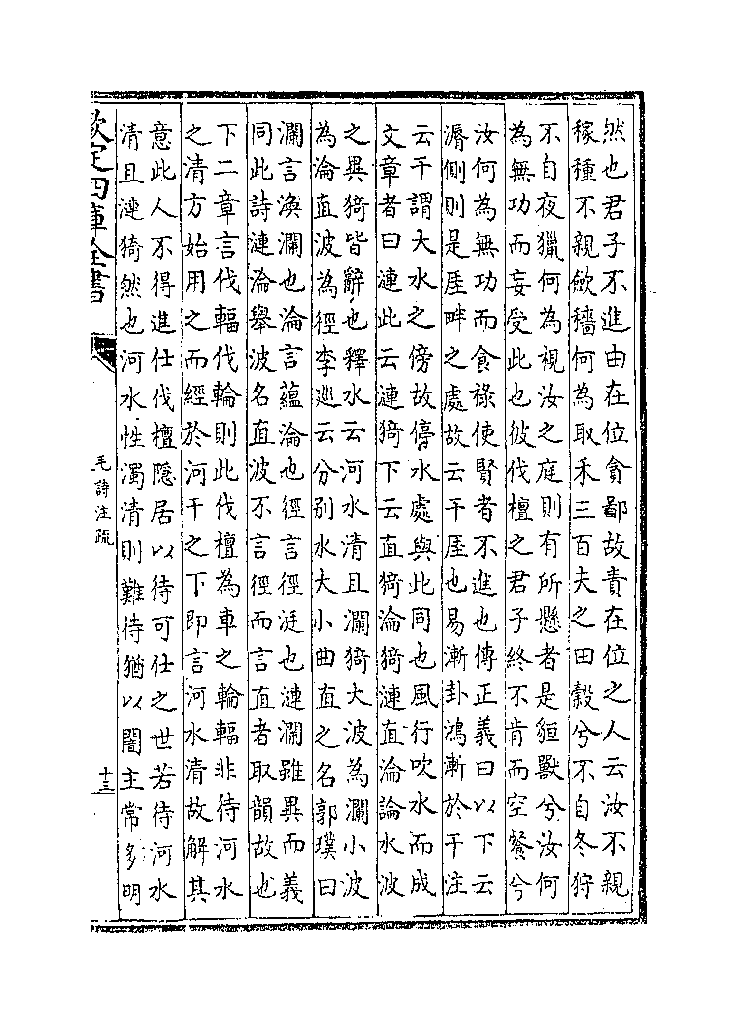 然也君子不進由在位貪鄙故責在位之人云汝不親
稼種不親斂穡何為取禾三百夫之田穀兮不自冬狩
不自夜獵何為視汝之庭則有所懸者是貆獸兮汝何
為無功而妄受此也彼伐檀之君子終不肯而空餐兮
汝何為無功而食祿使賢者不進也傳正義曰以下云
漘側則是厓畔之處故云干厓也易漸卦鴻漸於干注
云干謂大水之傍故停水處與此同也風行吹水而成
文章者曰漣此云漣猗下云直猗淪猗漣直淪論水波
之異猗皆辭也釋水云河水清且瀾猗大波為瀾小波
為淪直波為徑李巡云分别水大小曲直之名郭璞曰
瀾言渙瀾也淪言蘊淪也徑言徑涏也漣瀾雖異而義
同此詩漣淪舉波名直波不言徑而言直者取韻故也
下二章言伐輻伐輪則此伐檀為車之輪輻非待河水
之清方始用之而經於河干之下即言河水清故解其
意此人不得進仕伐檀隱居以待可仕之世若待河水
清且漣猗然也河水性濁清則難待猶以闇主常多明
欽定四庫全書
毛詩注疏
十三